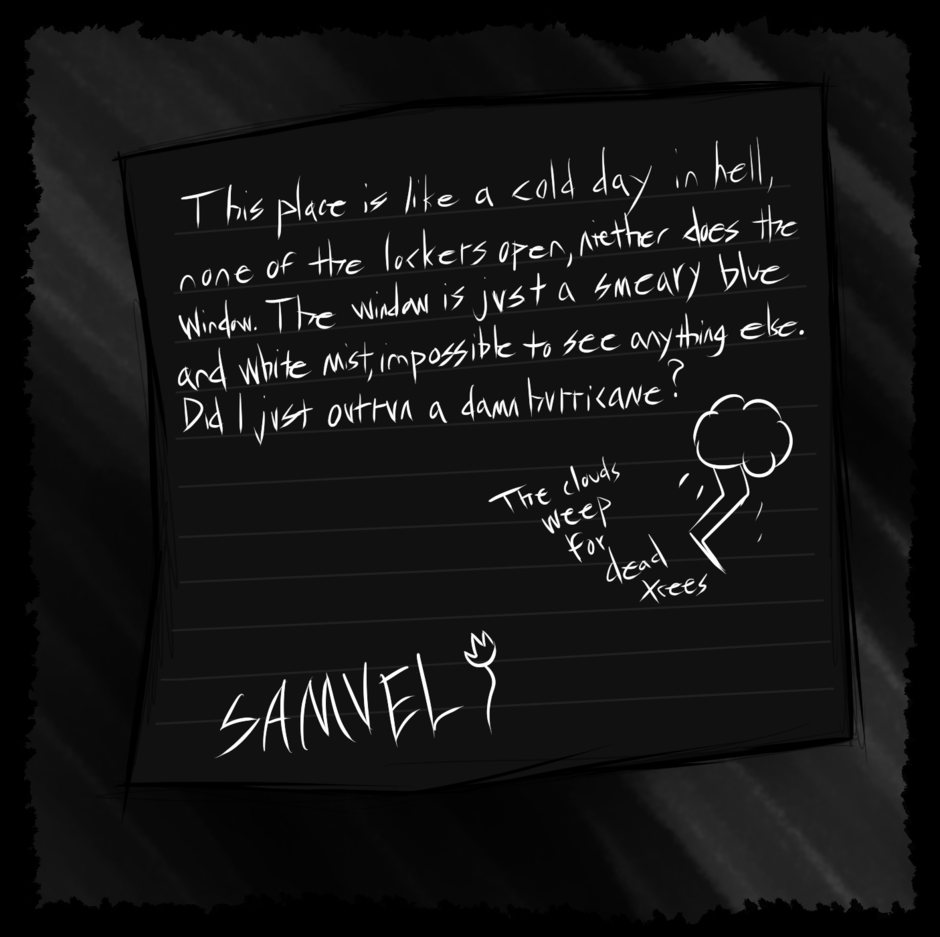 This place is like a cold day in hell,
none of the lockers open, niether does the
window. The window is just a smeary blue
and white mist, impossible to see anything else.
Did I just outrun a damn hurricane?
The clouds
weep
for
dead
trees
SAMUEL